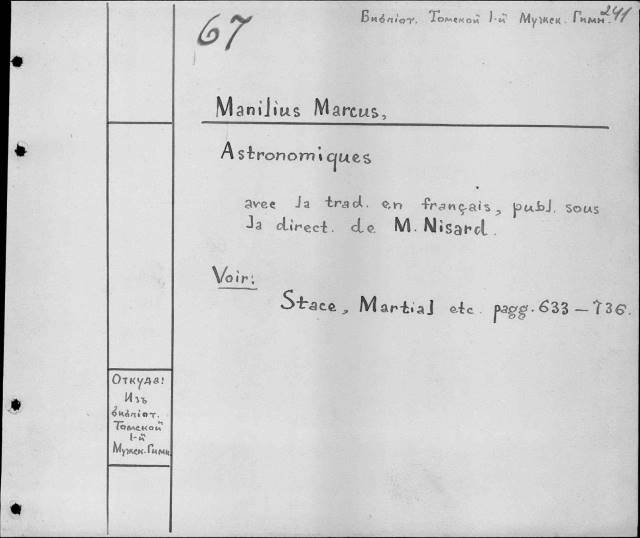 241
67
Библіот. Томской 1-й Мужск. Гимн.
Manilius Marcus,
Astronomiques
avec la trad. en français, publ. sous
la direct. de M. Nisard.
Voir:
Stace, Martial etc. pagg. 633 — 736.
Откуда:
Изъ
библіот.
Томской
1-й
Мужск. Гимн.